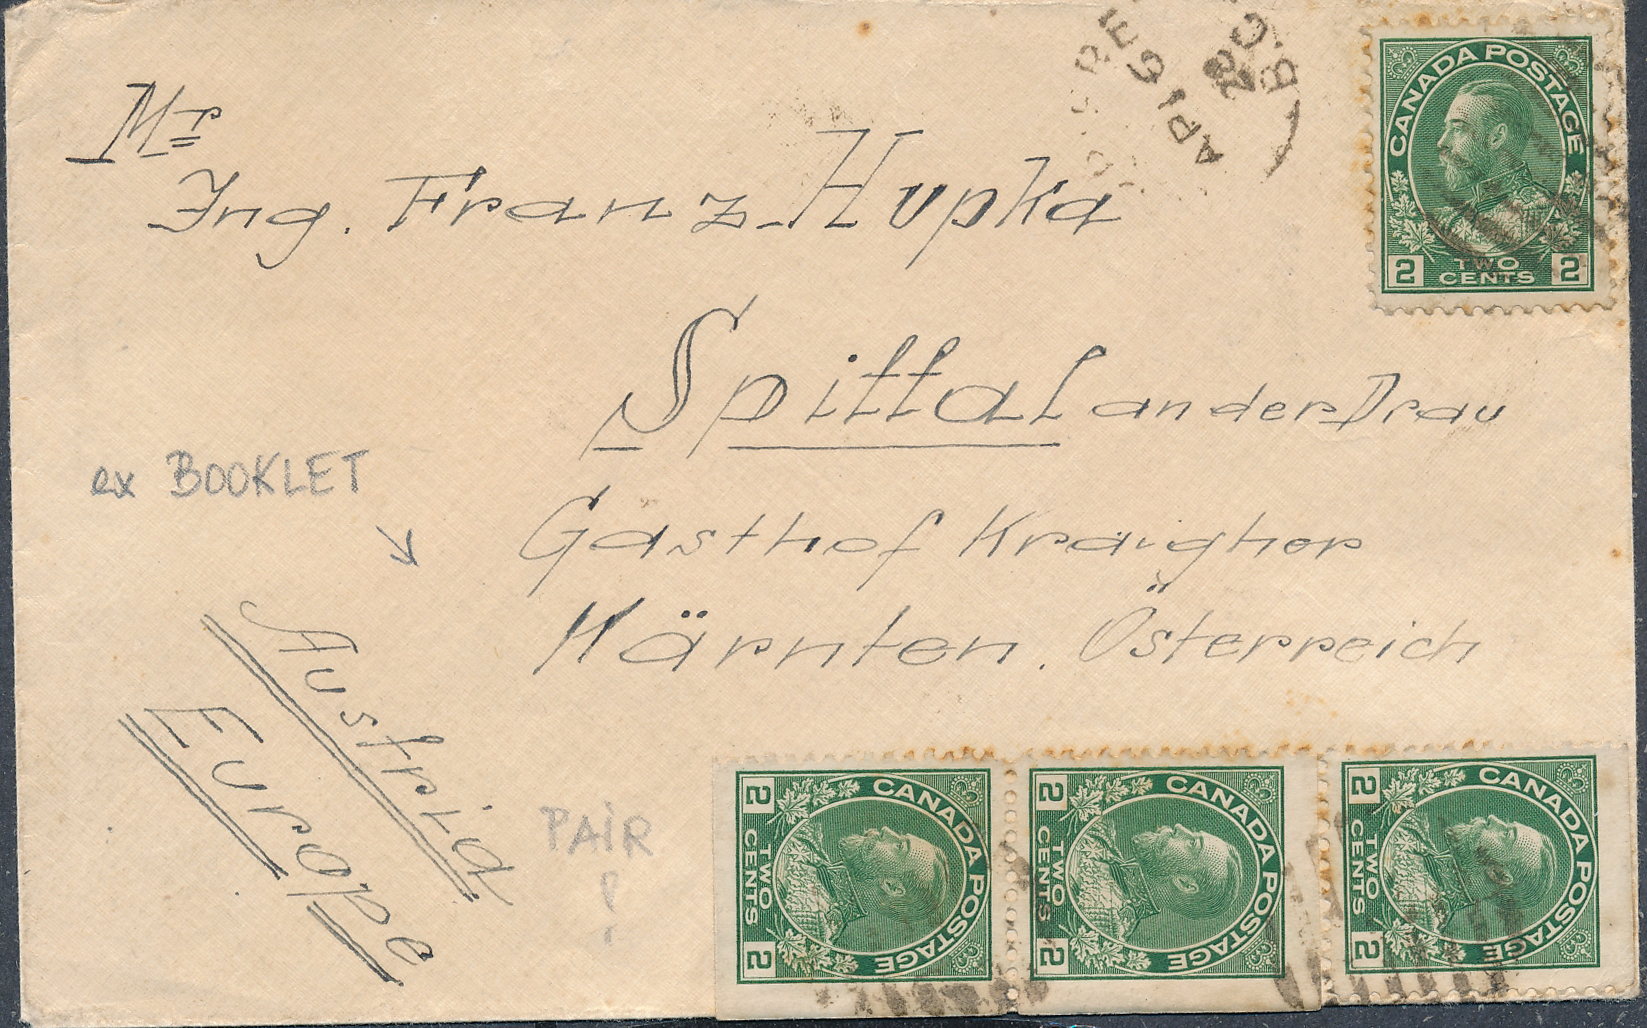 Mr
Ing. Franz Hupka
Spittal an der Drau
Gasthof Kraigher
Kärnten. Österreich
Austria
Europe
ex BOOKLET
PAIR
!
AP 1
B.C.
CANADA POSTAGE
2 TWO CENTS 2
CANADA POSTAGE
2 TWO CENTS 2
CANADA POSTAGE
2 TWO CENTS 2
CANADA POSTAGE
2 TWO CENTS 2